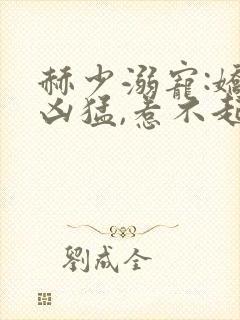 赫少溺寵:嬌
凶猛,惹不起
劉成全